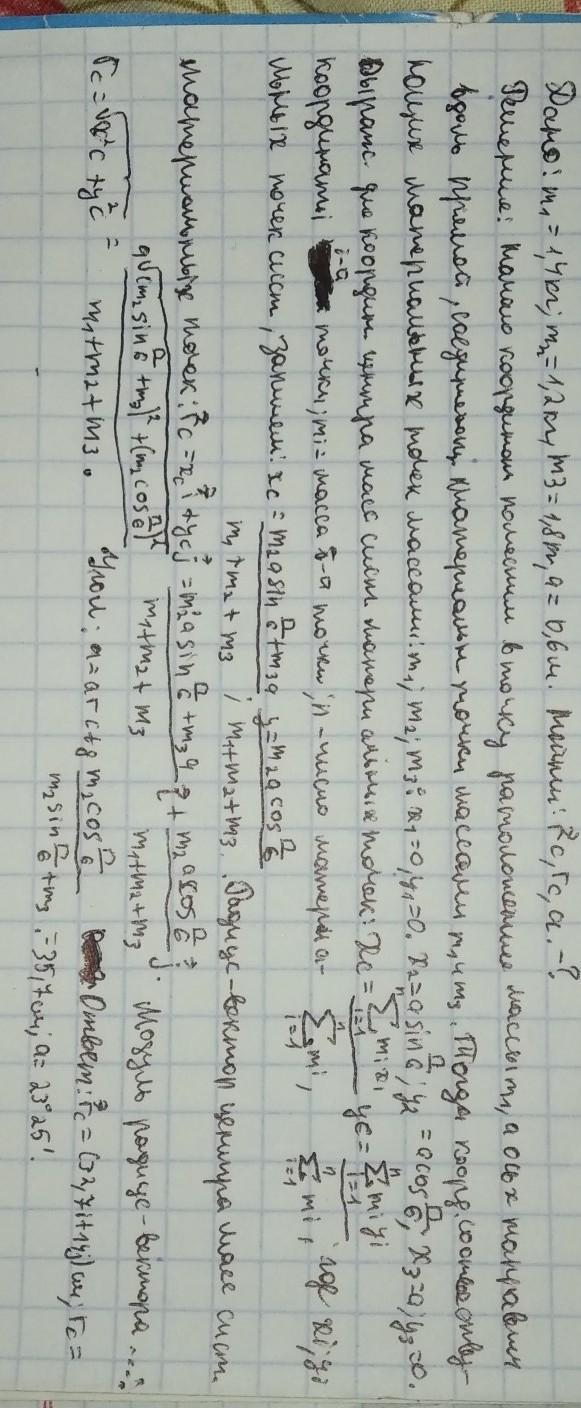 Дано: m₁ = 1,4 кг, m₂ = 1,2 м, m3 = 1,8 m, a = 0,6 м. Найти: r⃗c, rc, α. -?
Решение: Начало координат поместим в точку расположение массы m₁, а ось x направим
вдоль прямой, соединяющ. материальн точки массами m₁ и m₃. Тогда коорд. соответству-
ющих материальных точек массами: m₁; m₂; m₃: x₁=0, y₁=0. x₂=a sin π/6; y₂ = a cos π/6, x₃=a; y₃=0.
Выраж. для координ центра масс сист. материальных точек: xc = Σⁿᵢ₌₁ mᵢxᵢ / Σⁿᵢ₌₁ mᵢ, yc = Σⁿᵢ₌₁ mᵢyᵢ / Σⁿᵢ₌₁ mᵢ, где xᵢ, yᵢ
координаты i-й точки; mᵢ = масса i-й точки; n - число материа-
льных точек сист, запишем: xc = m₂a sin π/6 + m₃a / m₁ + m₂ + m₃; y = m₂a cos π/6 / m₁+m₂+m₃. Радиус-вектор центра масс сист.
материальных точек: r⃗c = xc i⃗ + yc j⃗ = m₂a sin π/6 + m₃a / m₁+m₂+m₃ i⃗ + m₂a cos π/6 / m₁+m₂+m₃ j⃗. Модуль радиус-вектора ....:
rc = √x²c + yc² = a√(m₂ sin π/6 + m₃)² + (m₂ cos π/6)² / m₁+m₂+m₃.
Угол: α = arctg m₂ cos π/6 / m₂ sin π/6 + m₃. Ответ: r⃗c = (32,7i + 14j) см; rc =
= 35,7 см; α = 23°25'.